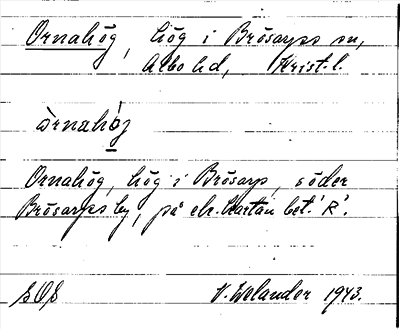 Ornahög, hög i Brösarps sn,
Albo hd, Krist. l.
òrnahö́g
Ornahög, hög i Brösarp, söder
Brösarps by, på ek. kartan bet. 'R'.
SOS V. Welander 1943.